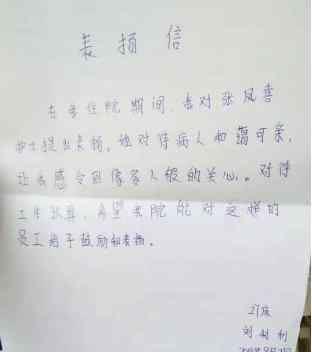 表扬信
在我住院期间,要对张凤喜
护士提出表扬。她对待病人和蔼可亲,
让我感令到像家人般的关心。对待
工作认真,希望贵院能对这样的
员工给予鼓励和表扬。
21床